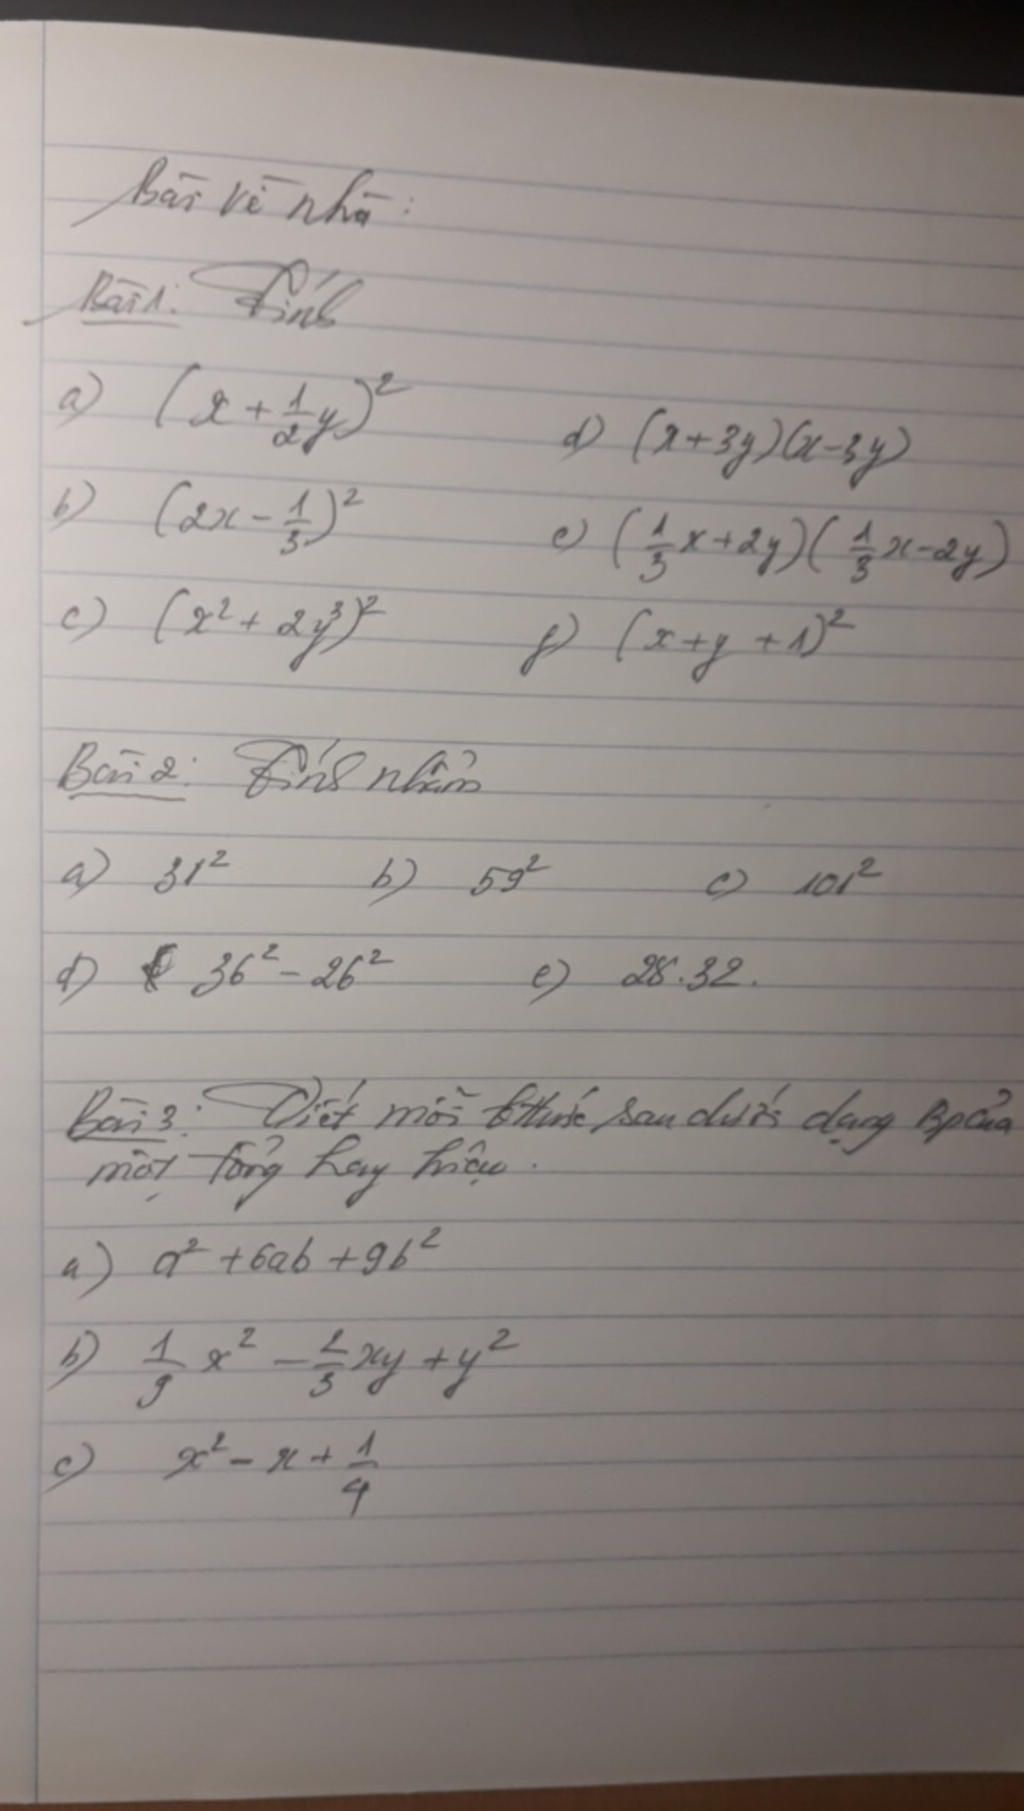 Bài về nhà:
Bài 1: Tính
a) (x + 1/2 y)²
d) (x+3y)(x-3y)
b) (2x - 1/3)²
e) (1/3 x+2y)(1/3 x-2y)
c) (x² + 2y³)²
f) (x+y+1)²
Bài 2: Tính nhẩm
a) 31² b) 59² c) 101²
d) 36² - 26² e) 28.32.
Bài 3: Viết mỗi bthức sau dưới dạng Bp của
một tổng hay hiệu.
a) a² + 6ab + 9b²
b) 1/9 x² - 2/3 xy + y²
c) x² - x + 1/4